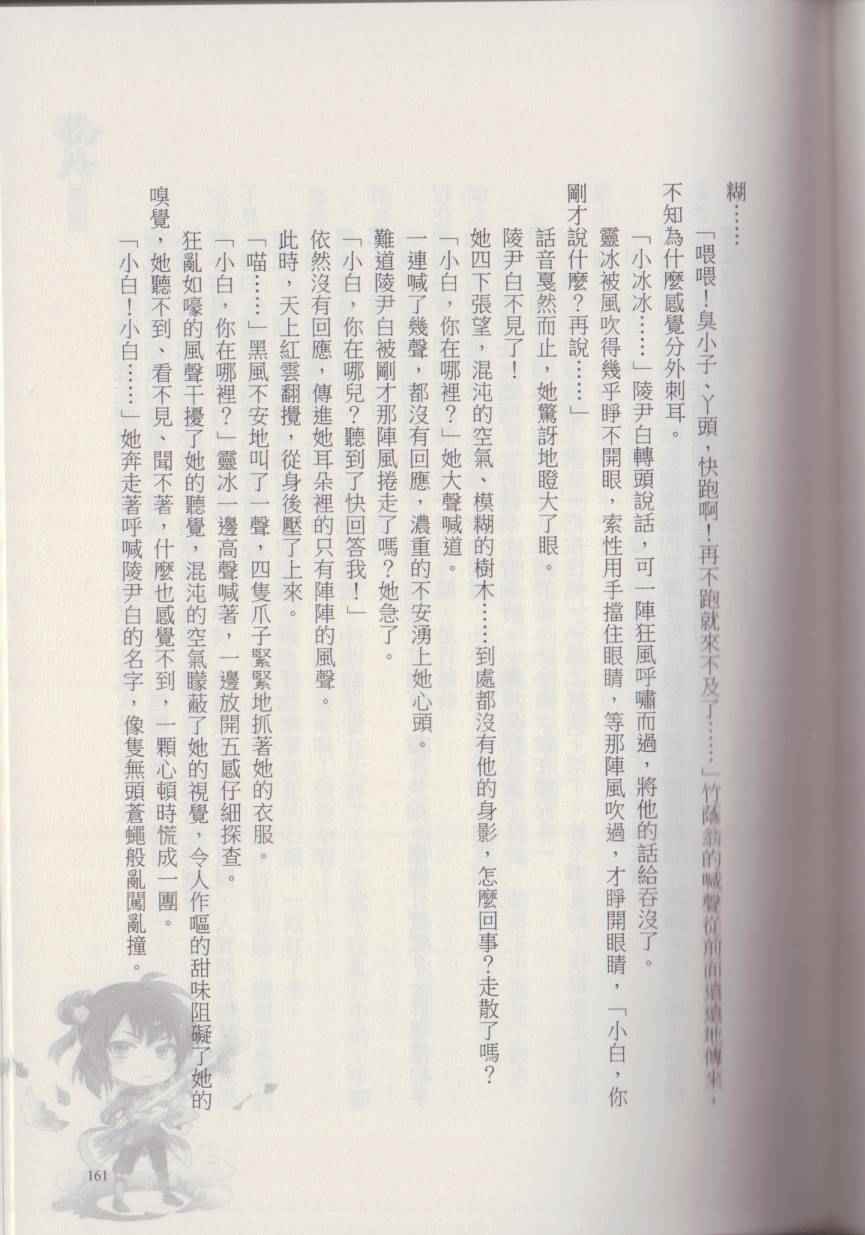 糊⋯⋯
「喂喂！臭小子、丫頭，快跑啊！再不跑就來不及了⋯⋯」竹蔭翁的喊聲從前面遠遠地傳來，
不知為什麼感覺分外刺耳。
「小冰冰⋯⋯」陵尹白轉頭說話，可一陣狂風呼嘯而過，將他的話給吞沒了。
靈冰被風吹得幾乎睜不開眼，索性用手擋住眼睛，等那陣風吹過，才睜開眼睛，「小白，你
剛才說什麼？再說⋯⋯」
話音戛然而止，她驚訝地瞪大了眼。
陵尹白不見了！
她四下張望，混沌的空氣、模糊的樹木⋯⋯到處都沒有他的身影，怎麼回事？走散了嗎？
「小白，你在哪裡？」她大聲喊道。
一連喊了幾聲，都沒有回應，濃重的不安湧上她心頭。
難道陵尹白被剛才那陣風捲走了嗎？她急了。
「小白，你在哪兒？聽到了快回答我！」
依然沒有回應，傳進她耳朵裡的只有陣陣的風聲。
此時，天上紅雲翻攪，從身後壓了上來。
「喵⋯⋯」黑風不安地叫了一聲，四隻爪子緊緊地抓著她的衣服。
「小白，你在哪裡？」靈冰一邊高聲喊著，一邊放開五感仔細探查。
狂亂如嚎的風聲干擾了她的聽覺，混沌的空氣矇蔽了她的視覺，令人作嘔的甜味阻礙了她的
嗅覺，她聽不到、看不見、聞不著，什麼也感覺不到，一顆心頓時慌成一團。
「小白！小白⋯⋯」她奔走著呼喊陵尹白的名字，像隻無頭蒼蠅般亂闖亂撞。
161